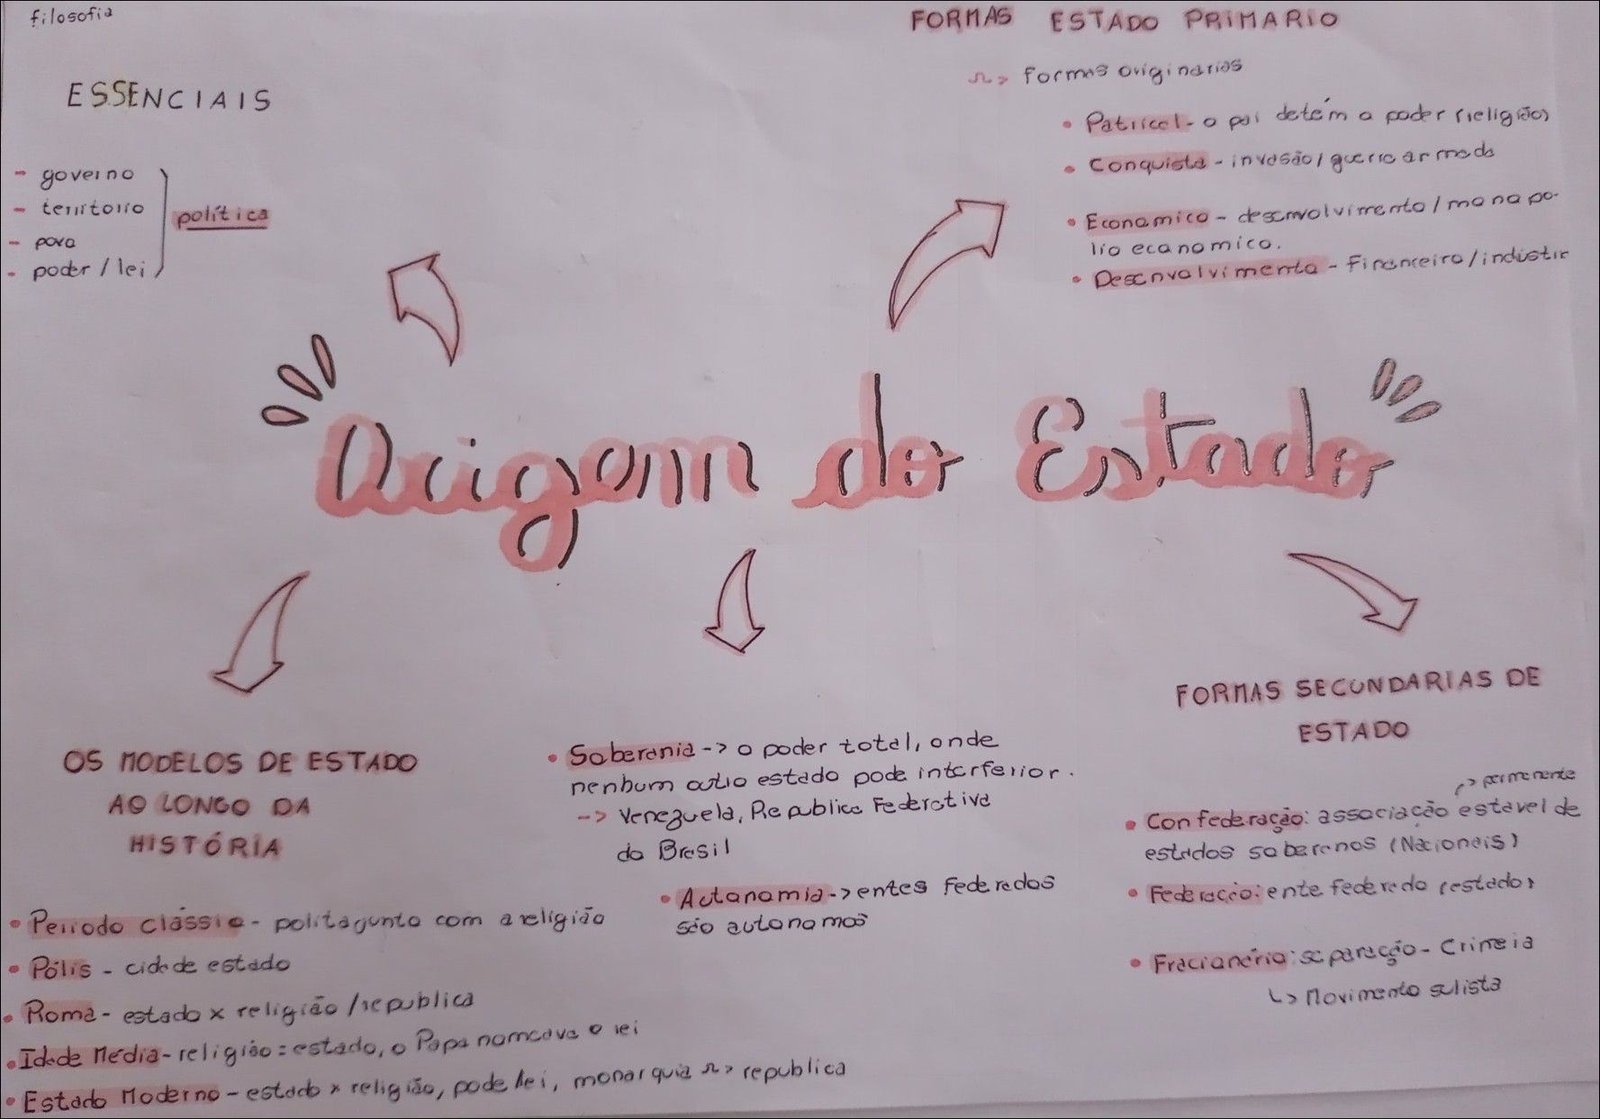 filosofia
ESSENCIAIS
- governo
- território
- povo
- poder / lei
política
FORMAS ESTADO PRIMARIO
formas originarias
• Patricel - o pai detém o poder (religião)
• Conquista - invasão / guerra armada
• Economico - desenvolvimento / monopo-
lio economico.
• Desenvolvimento - Financeiro / indústir
Origem do Estado
OS MODELOS DE ESTADO
AO LONGO DA
HISTÓRIA
• Periodo clássio - politajunto com a religião
• Pólis - cidade estado
• Roma - estado x religião / republica
• Idade Média - religião = estado, o Papa nomeava o rei
• Estado Moderno - estado x religião, pode lei, monarquia -> republica
• Soberania -> o poder total, onde
nenhum outro estado pode interferior.
-> Venezuela, Republica Federativa
do Brasil
• Autonomia -> entes federados
são autonomos
FORMAS SECUNDARIAS DE
ESTADO
-> permanente
• Confederação: associação estavel de
estados soberanos (Nacionais)
• Federação: ente federado (estado)
• Fracionária: separação - Crimeia
↳ Movimento sulista